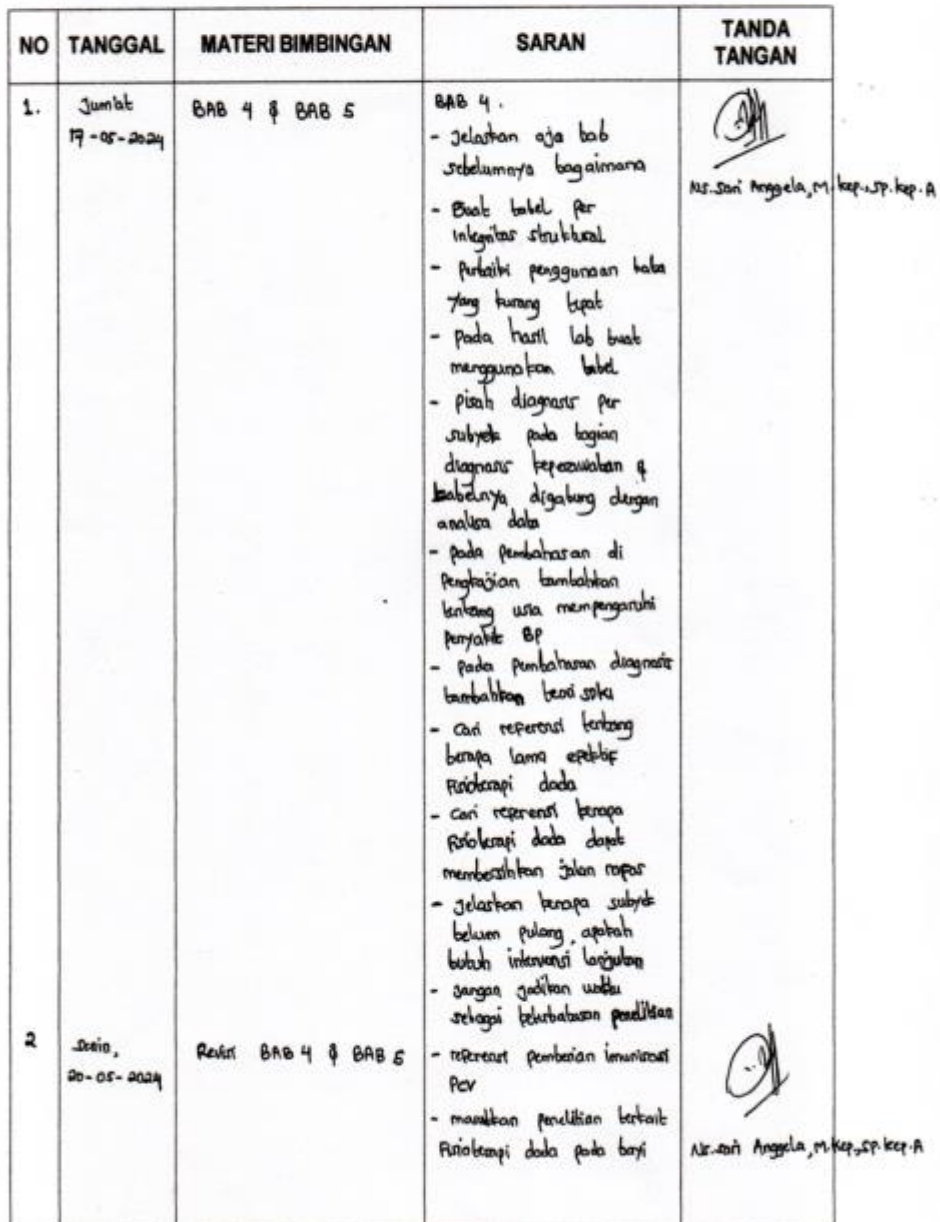 NO TANGGAL MATERI BIMBINGAN SARAN TANDA TANGAN
1. Jum'at 17-05-2024
BAB 4 & BAB 5
BAB 4.
- Jelaskan aja bab
sebelumnya bagaimana
- Buat tabel per
integritas struktural
- Perbaiki penggunaan kata
yang kurang tepat
- pada hasil lab buat
menggunakan tabel
- pisah diagnosis per
subyek pada bagian
diagnosis keperawatan &
tabelnya digabung dengan
analisa data
- pada pembahasan di
Pengkajian tambahkan
tentang usia mempengaruhi
penyakit BP
- pada pembahasan diagnosis
tambahkan teori SDKI
- cari referensi tentang
berapa lama efektif
Fisioterapi dada
- cari referensi kenapa
Fisioterapi dada dapat
membersihkan jalan napas
- Jelaskan kenapa subyek
belum pulang, apakah
butuh intervensi lanjutan
- Jangan jadikan waktu
sebagai keterbatasan penelitian
Ns. Sari Anggela, M.kep., Sp.kep.A
2 Senin,
20-05-2024
Revisi BAB 4 & BAB 5
- referensi pemberian imunisasi
PCV
- masukkan penelitian terkait
Fisioterapi dada pada bayi
Ns. Sari Anggela, M.kep., Sp.kep.A